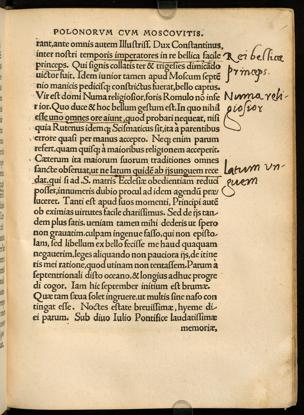 POLONORVM CVM MOSCOVITIS.
rant, ante omnis autem Illustriss. Dux Constantinus,
inter nostri temporis imperatores in re bellica facile
princeps. Qui signis collatis ter & trigesies dimicādo
uictor fuit. Idem iunior tamen apud Moscum septē
nio manicis pedicisqȝ constrictus fuerat, bello captus.
Vir est domi Numa religiosior, foris Romulo nō infe
rior. Quo duce & hoc bellum gestum est. In quo nihil
esse uno omnes ore aiunt, quod probari nequeat, nisi
quia Rutenus idemqȝ Scismaticus sit, ita a parentibus
errore quasi per manus accepto. Neqȝ enim parum
refert, quam quisqȝ à maioribus religionem acceperit.
Cæterum ita maiorum suorum traditiones omnes
sancte obseruat, ut ne latum quidē ab ijs unguem rece
dat, qui si ad S. matris Ecclesiæ obedientiam reduci
posset, innumeris dubio procul ad idem agendū præ
luceret. Tanti est apud suos momenti, Principi autē
ob eximias uirtutes facile charissimus. Sed de ijs tan
dem plus satis. ueniam tamen mihi dederis ut spero
non grauatim. culpam ingenue fasso, qui non episto
lam, sed libellum ex bello fecisse me haud quaquam
negauerim, leges aliquando non pauciora ijs, de itine
ris mei ratione, quod utinam non tentassem. Parum a
septentrionali disto oceano. & longius adhuc progre
di cogor. Iam hic september initium est brumæ.
Quæ tam sæua solet ingruere, ut multis sine naso con
tingat esse. Noctes estate breuissimæ, hyeme di-
ei parum. Sub diuo Iulio Pontifice laudatissimæ
memoriæ,
Rei bellicæ
princeps.
Numa reli-
giosior
Latum un-
guem